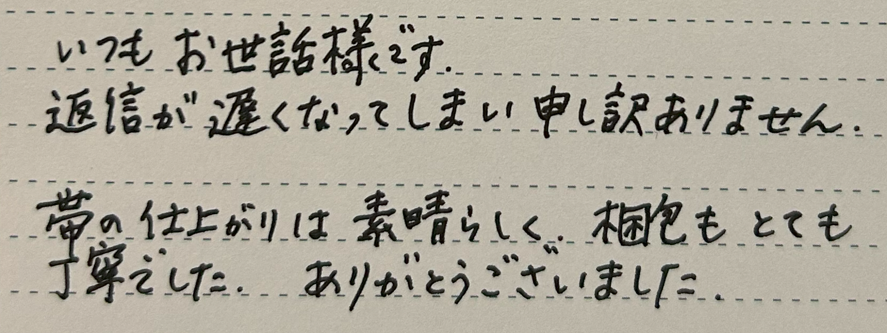 いつもお世話様です.
返信が遅くなってしまい申し訳ありません.
帯の仕上がりは素晴らしく. 梱包もとても
丁寧でした. ありがとうございました.